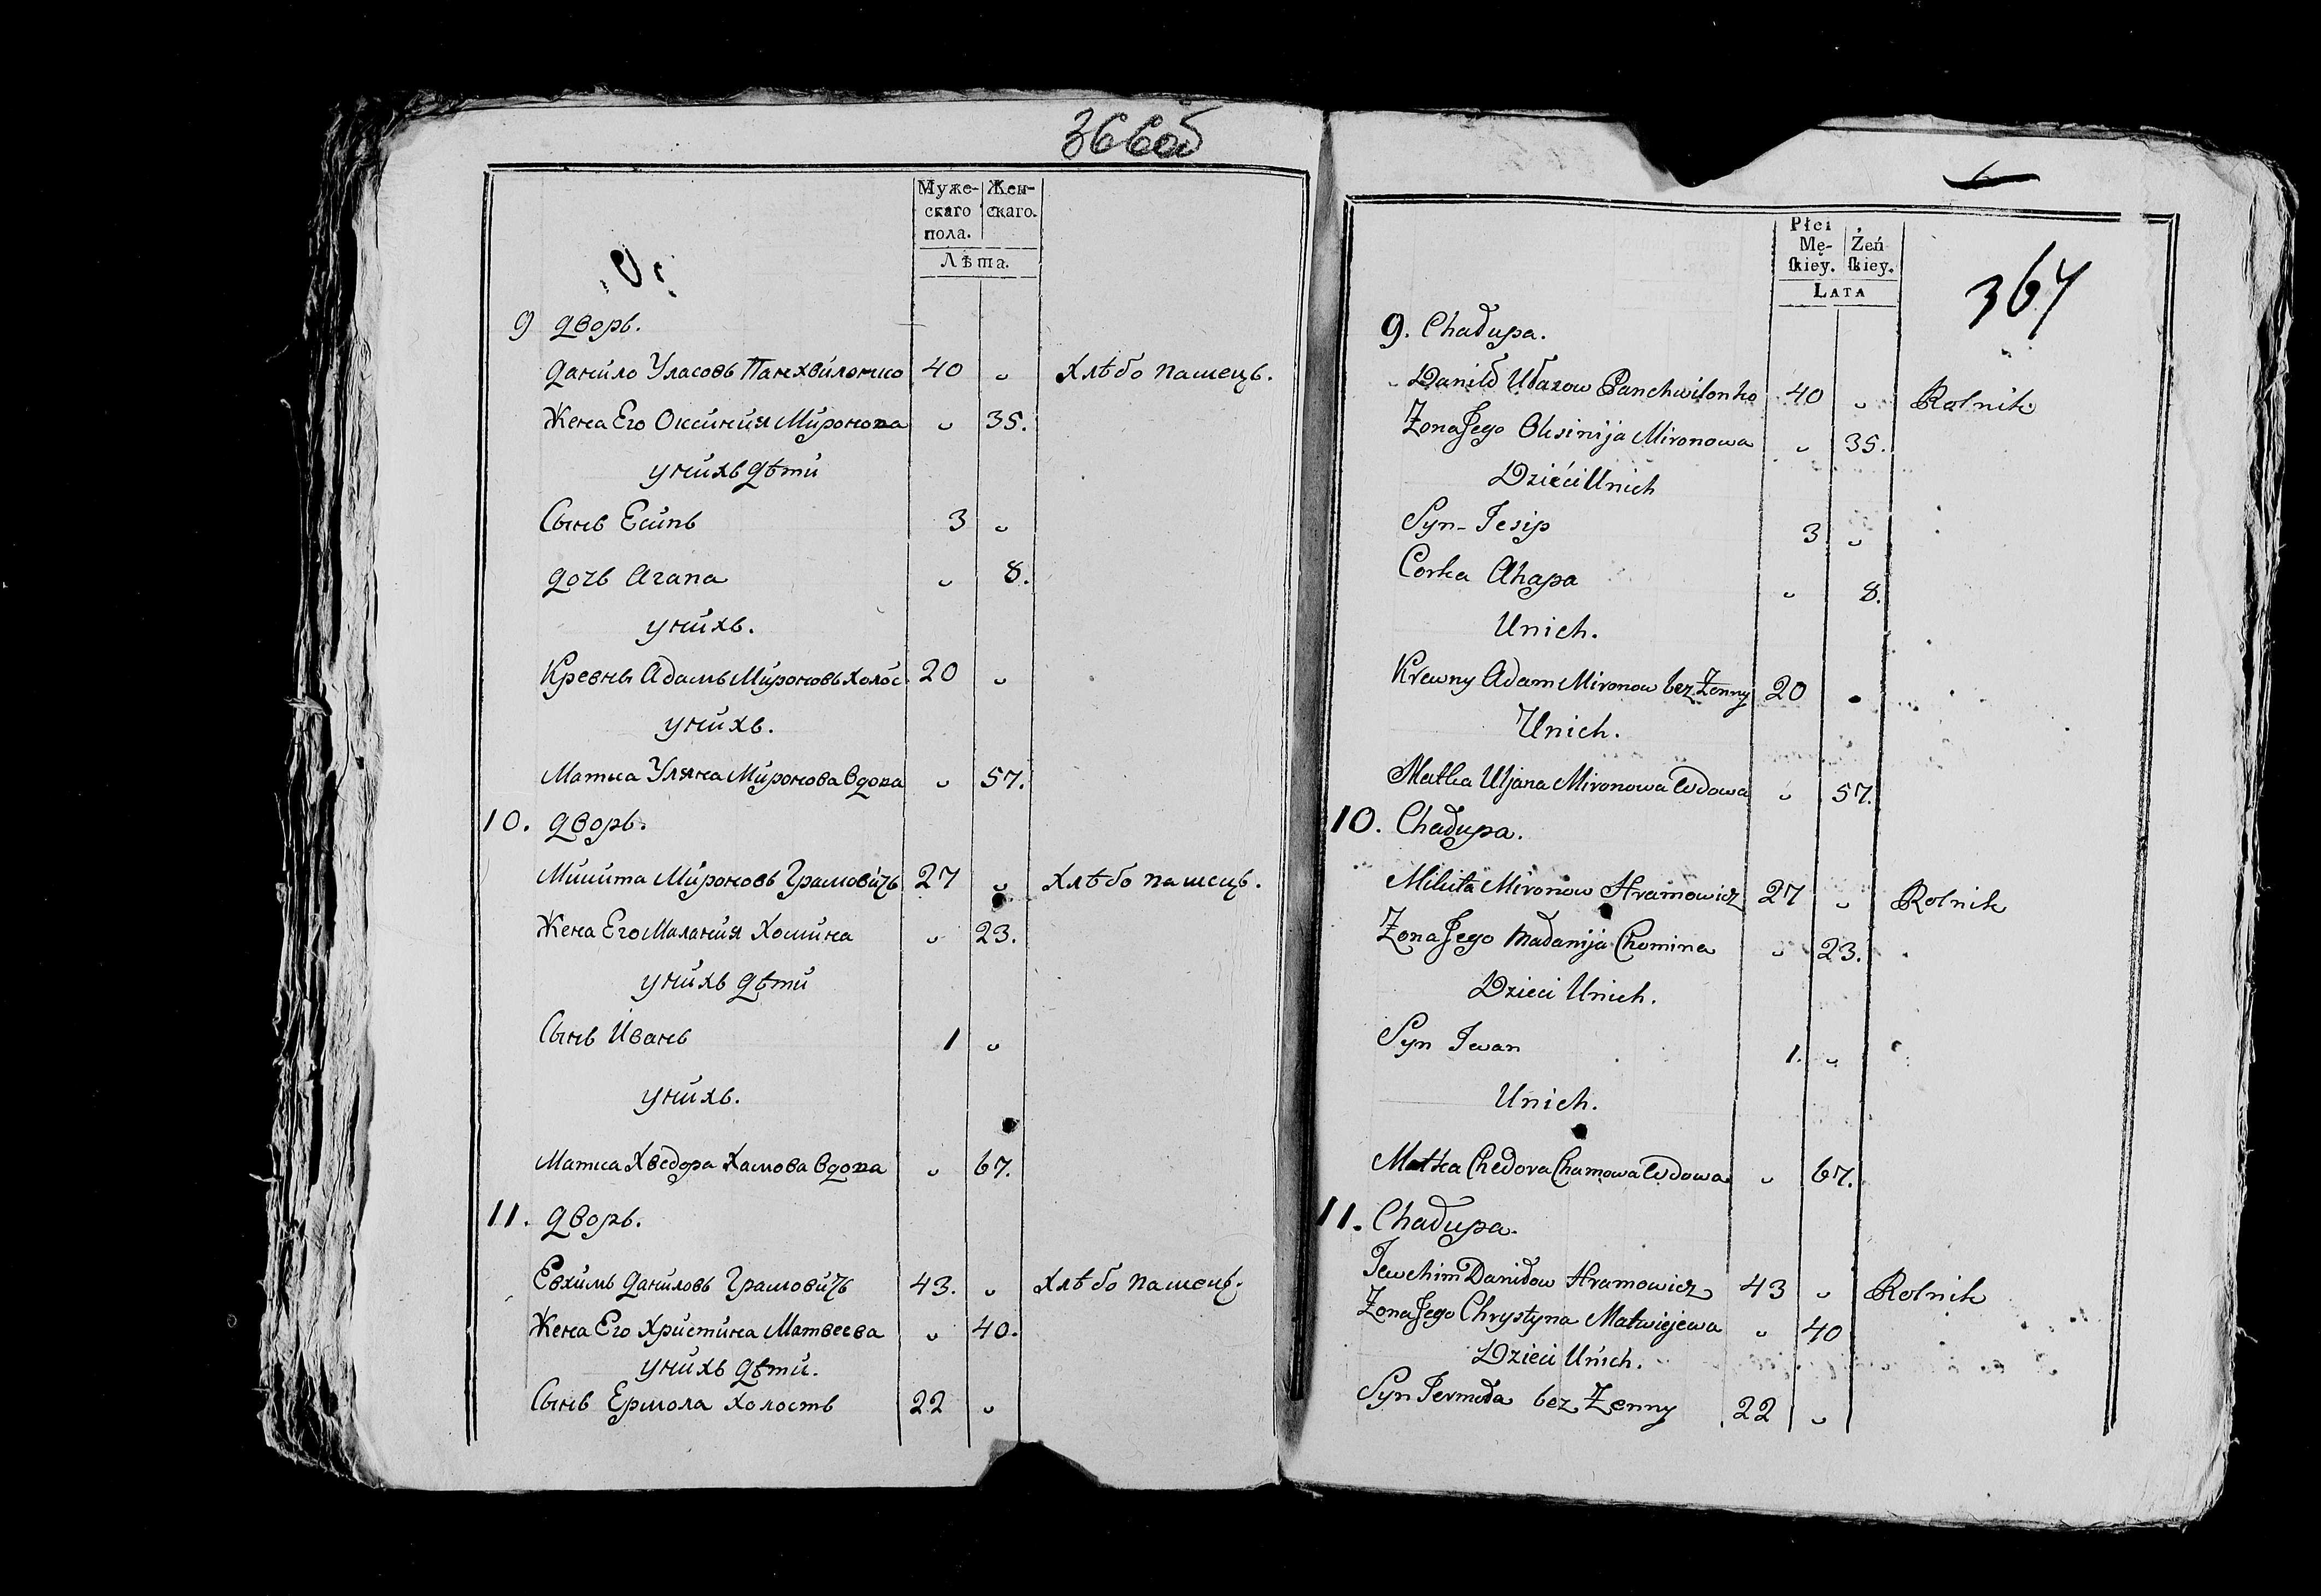 366об
Муже- Жен-
скаго скаго.
пола.
Лѣта.
9 дворъ.
данило Уласовъ Панхвиленко 40 „ хлѣбо пашецъ.
Жена Его Оксиния Миронова „ 35.
у нихъ дѣти
Сынъ Есипъ 3 „
дочь Агапа „ 8.
у нихъ.
Кревнъ Адамъ Мироновъ холос. 20 „
у нихъ.
Матка Уляна Миронова вдова „ 57.
10. дворъ.
Микита Мироновъ Грамовичъ 27 „ хлѣбо пашецъ.
Жена Его Малания Хомина „ 23.
у нихъ дѣти
Сынъ Иванъ 1 „
у нихъ.
Матка Хведора Хамова вдова „ 67.
11. дворъ.
Евхимъ даниловъ Грамовичъ 43. „ хлѣбо пашецъ.
Жена Его Христина Матвеева „ 40.
у нихъ дѣти.
Сынъ Ермола холостъ 22 „
367
Płci
Mę- Żeń
ſkiey. ſkiey.
LATA
9. Chałupa.
Daniło Ułasow Panchwilonko 40 „ Rolnik
Zona Jego Oksinija Mironowa „ 35.
Dzieći Unich
Syn - Jesip 3 „
Corka Ahapa „ 8.
Unich.
Krewny Adam Mironow bez Zenny 20 „
Unich.
Matka Uljana Mironowa Wdowa „ 57.
10. Chałupa.
Mikita Mironow Hramowicz 27 „ Rolnik
Zona Jego Małanija Chomina „ 23.
Dzieci Unich.
Syn Iwan 1. „
Unich.
Matka Chedora Chamowa Wdowa „ 67.
11. Chałupa.
Jewchim Daniłow Hramowicz 43 „ Rolnik
Zona Jego Chrystyna Matwiejewa „ 40
Dzieci Unich.
Syn Jermoła bez Zenny 22 „